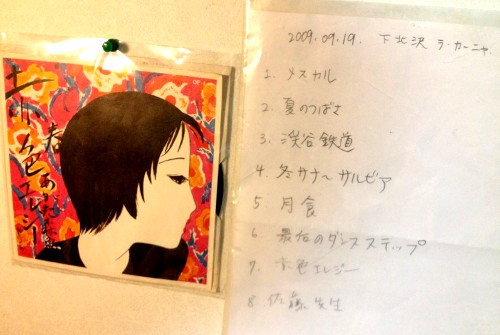 2009.09.19. 下北沢 ラ・カーニャ
1. メスカル
2. 夏のつばさ
3. 渓谷鉄道
4. 冬サナ〜サルビア
5. 月食
6. 最后のダンスステップ
7. 赤色エレジー
8. 佐藤先生
赤色エレジー